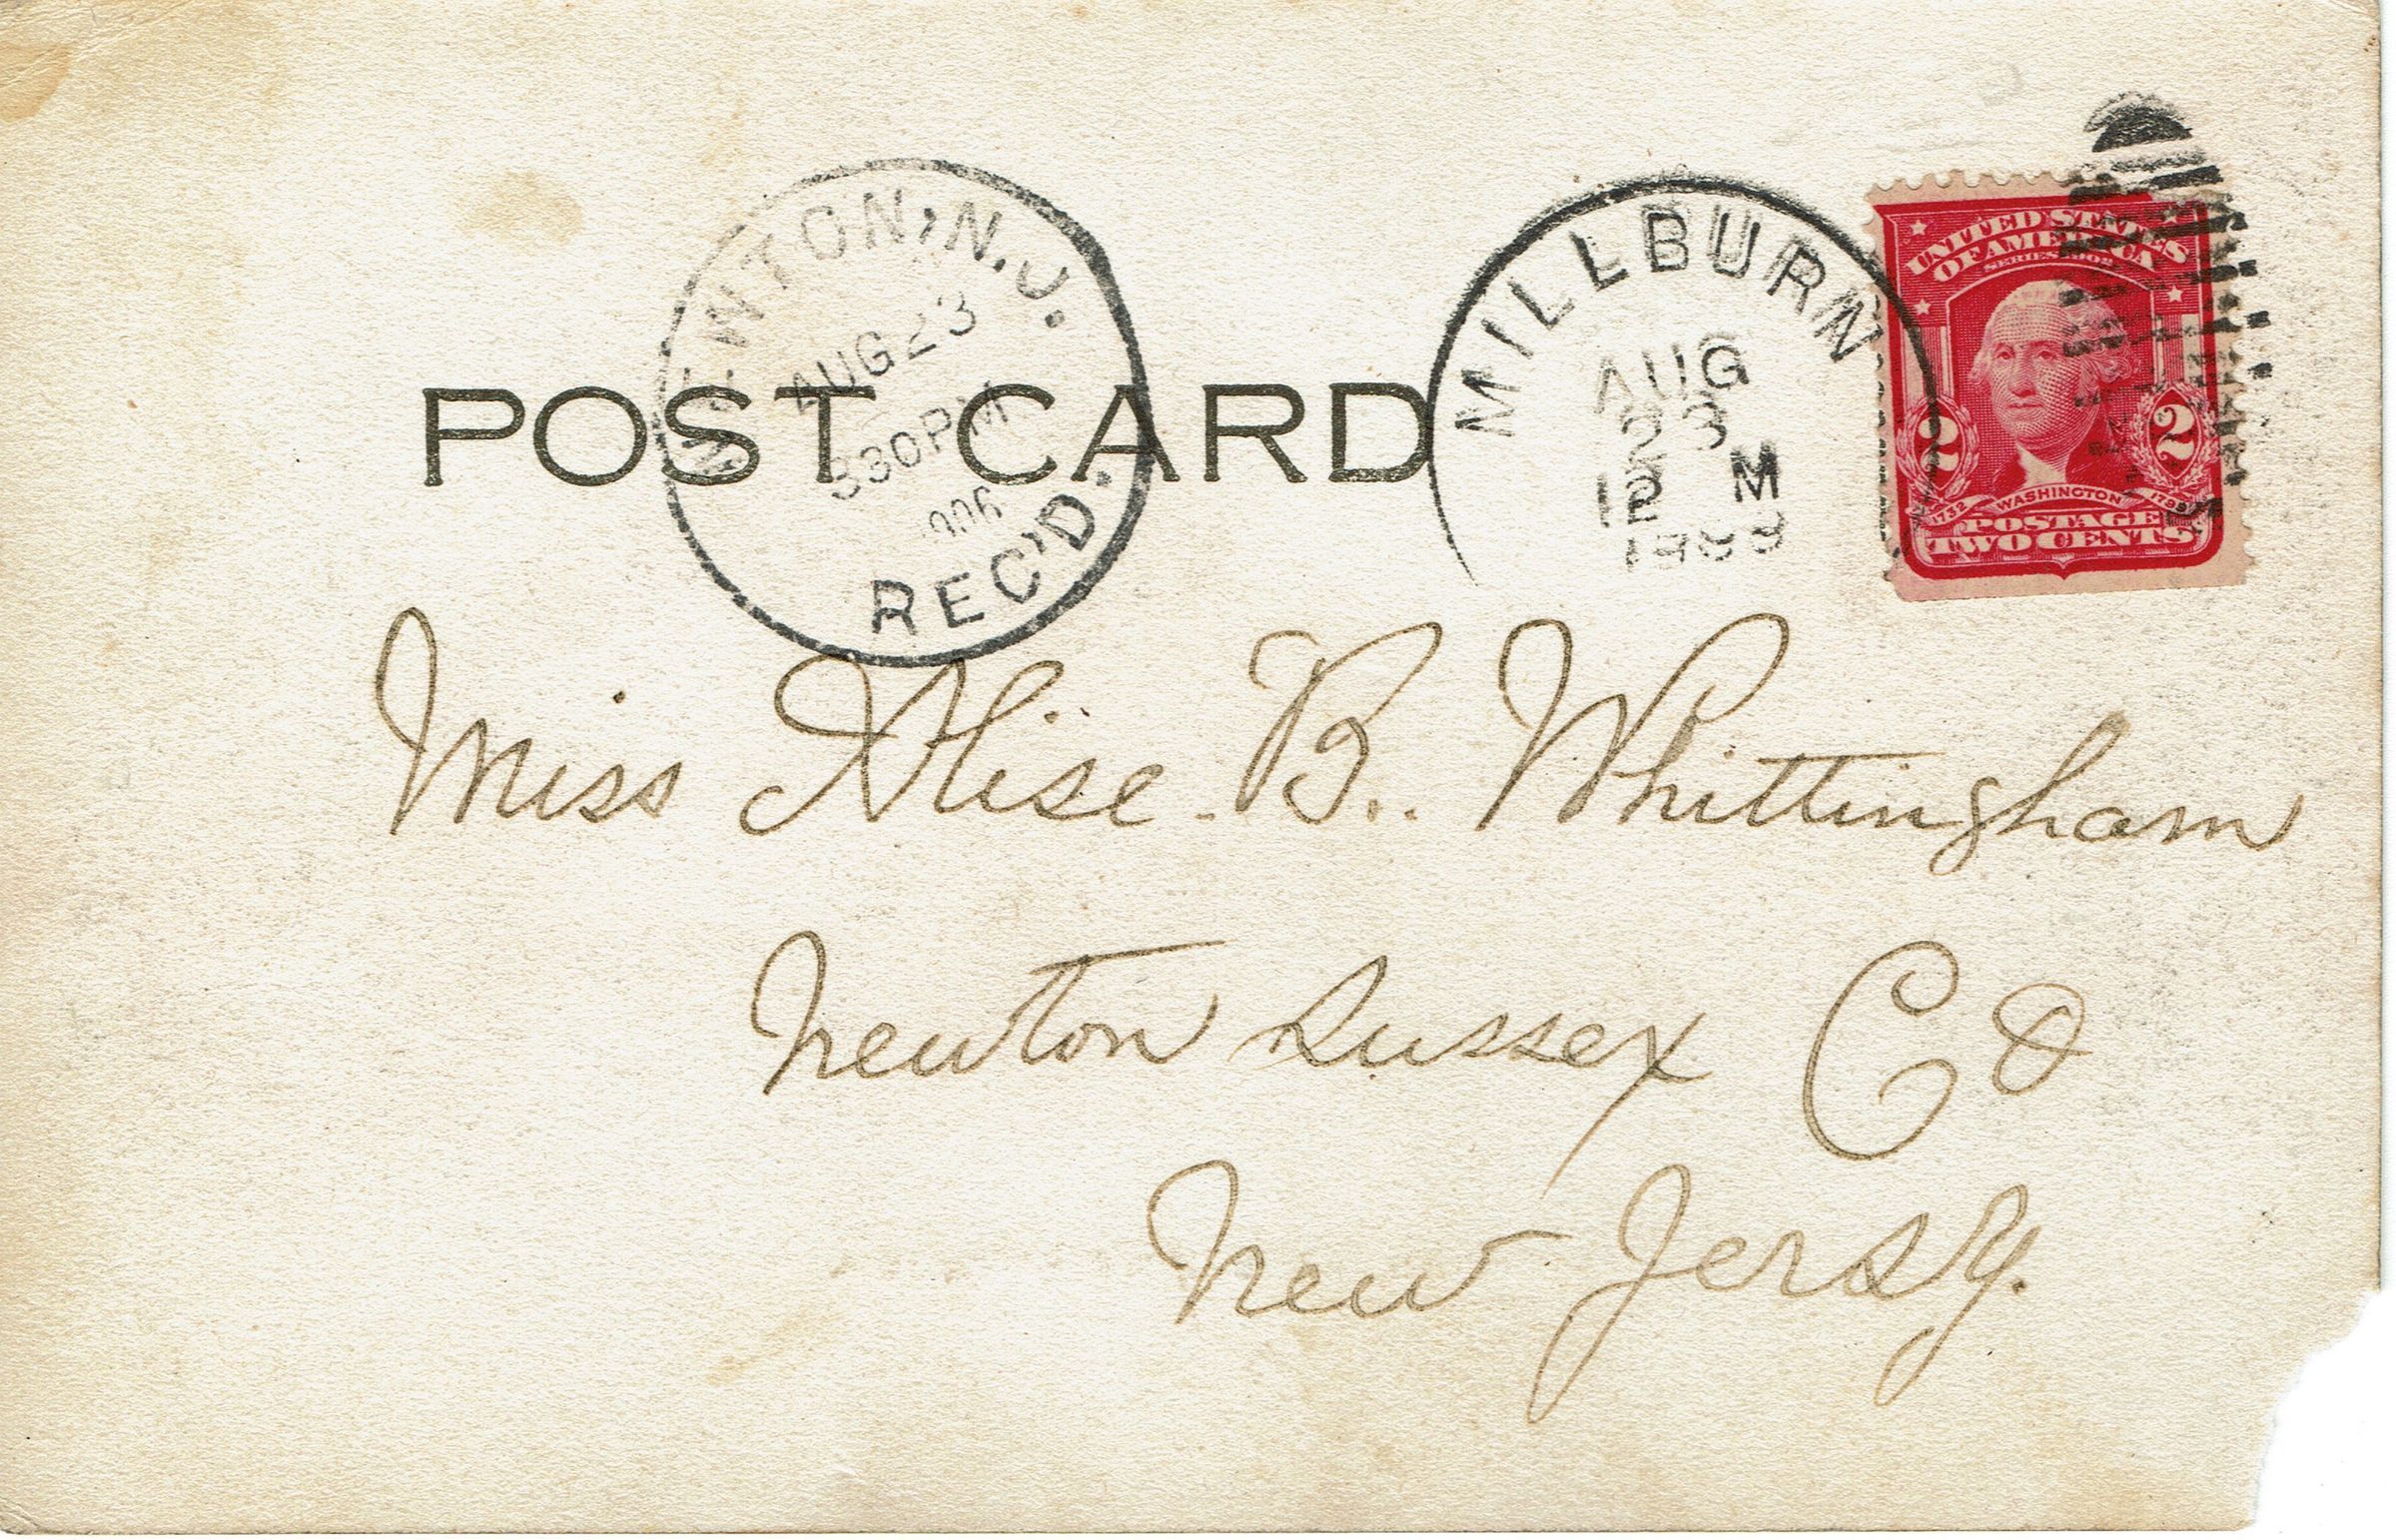 NEWTON, N.J.
AUG 23
330 PM
REC'D.
MILLBURN
AUG
23
12 M
UNITED STATES
OF AMERICA
SERIES 1902
2 2
1732 WASHINGTON 1799
POSTAGE
TWO CENTS
POST CARD
Miss Alise. B. Whittingham
Newton Sussex Co
New Jersy.